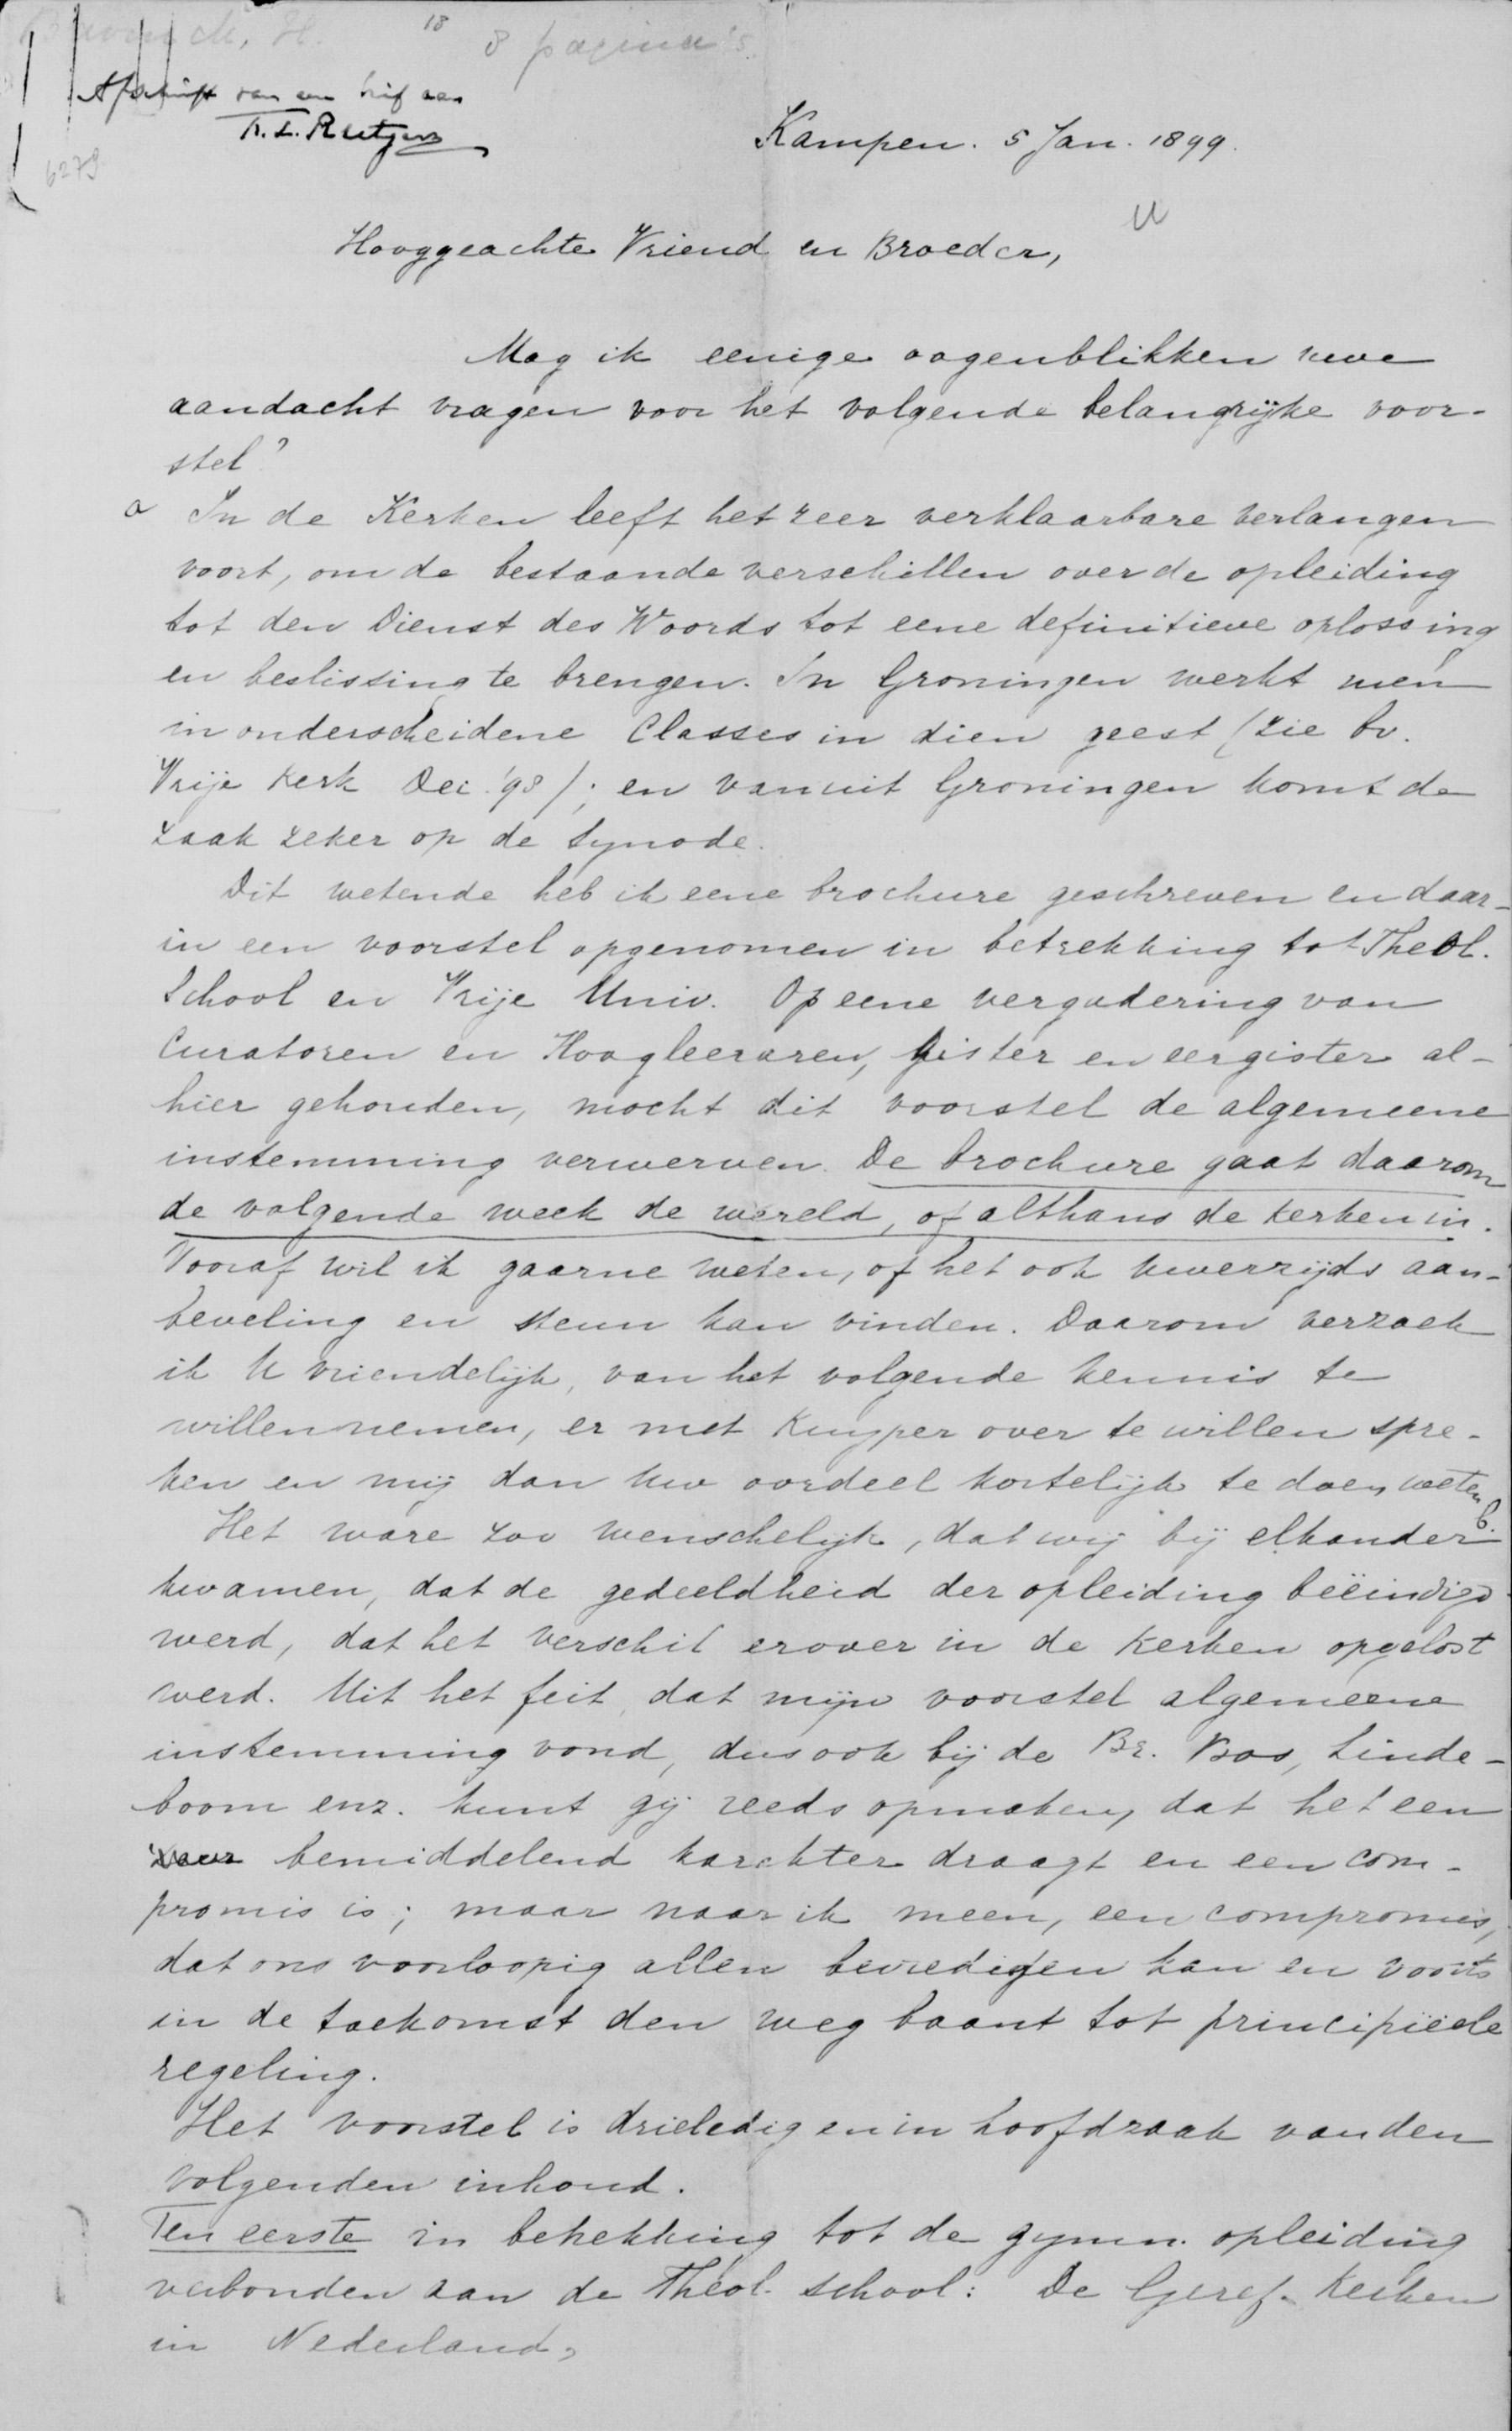 Bavinck, H. 18 8 pagina's
Afschrift van een brief aan
F. L. Rutgers
6279
Kampen. 5 Jan. 1899.
U
Hooggeachte Vriend en Broeder,
Mag ik eenige oogenblikken uwe
aandacht vragen voor het volgende belangrijke voor-
stel?
a In de Kerken leeft het zeer verklaarbare verlangen
voort, om de bestaande verschillen over de opleiding
tot den Dienst des Woords tot eene definitieve oplossing
en beslissing te brengen. In Groningen werkt men
in onderscheidene Classes in dien geest (zie bv.
Vrije Kerk Dec. '98); en vanuit Groningen komt de
zaak zeker op de Synode.
Dit wetende heb ik eene brochure geschreven en daar-
in een voorstel opgenomen in betrekking tot Theol.
School en Vrije Univ. Op eene vergadering van
Curatoren en Hoogleeraren, gister en eergister al-
hier gehouden, mocht dit voorstel de algemeene
instemming verwerven. De brochure gaat daarom
de volgende week de wereld, of althans de kerken in.
Vooraf wil ik gaarne weten, of het ook uwerzijds aan-
beveling en steun kan vinden. Daarom verzoek
ik U vriendelijk, van het volgende kennis te
willen nemen, er met Kuyper over te willen spre-
ken en mij dan uw oordeel kortelijk te doen weten
b.
Het ware zoo wenschelijk, dat wij bij elkander
kwamen, dat de gedeeldheid der opleiding beëindigd
werd, dat het verschil erover in de kerken opgelost
werd. Uit het feit, dat mijn voorstel algemeene
instemming vond, dus ook bij de Br. Bos, Linde-
boom enz. kunt gij reeds opmaken, dat het een
bemiddelend karakter draagt en een com-
promis is; maar naar ik meen, een compromis,
dat ons voorloopig allen bevredigen kan en voorts
in de toekomst den weg baant tot principiëele
regeling.
Het voorstel is drieledig en in hoofdzaak van den
volgenden inhoud.
Ten eerste in betrekking tot de gymn. opleiding
verbonden aan de Theol. School: De Geref. Kerken
in Nederland,